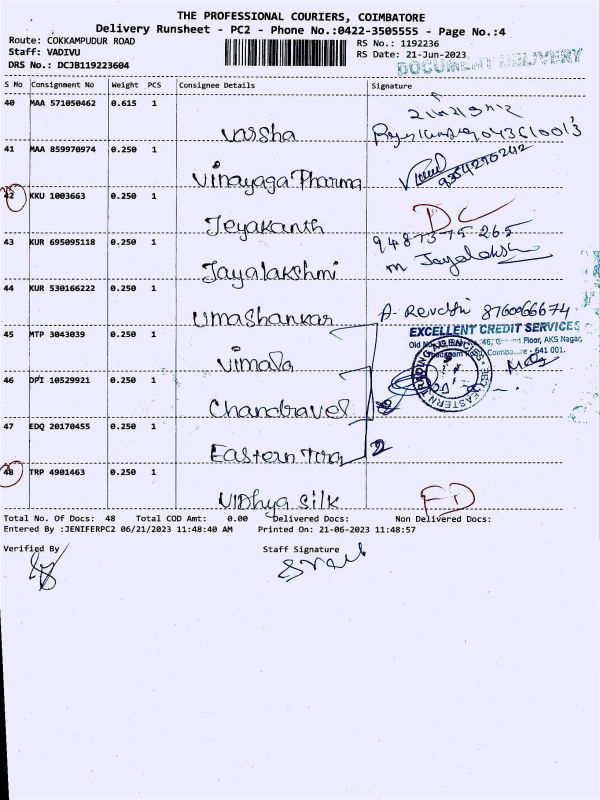 THE PROFESSIONAL COURIERS, COIMBATORE
Delivery Runsheet - PC2 - Phone No.:0422-3505555 - Page No.:4
Route: COKKAMPUDUR ROAD
Staff: VADIVU
DRS No.: DCJB119223604
RS No.: 1192236
RS Date: 21-Jun-2023
DOCUMENT DELIVERY
S No Consignment No Weight PCS Consignee Details Signature
40 MAA 571050462 0.615 1
Varsha
9043610013
41 MAA 859970974 0.250 1
Vinayaga Pharma
9384210242
42 KKU 1003663 0.250 1
Jeyakanth
DC
43 KUR 695095118 0.250 1
Jayalakshmi
9487375265
m Jayalakshmi
44 KUR 530166222 0.250 1
Umashankar
A- Revathi 8760066674
EXCELLENT CREDIT SERVICES
Floor, AKS Nagar,
Road, Coimbatore - 641 001.
45 MTP 3043039 0.250 1
Vimala
46 DPI 10529921 0.250 1
Chandravel
EASTERN TRADING AGENCIES
2
47 EDQ 20170455 0.250 1
Eastern Torq
2
48 TRP 4901463 0.250 1
Vidhya Silk
Total No. Of Docs: 48 Total COD Amt: 0.00 Delivered Docs: Non Delivered Docs:
Entered By :JENIFERPC2 06/21/2023 11:48:40 AM Printed On: 21-06-2023 11:48:57
Verified By Staff Signature